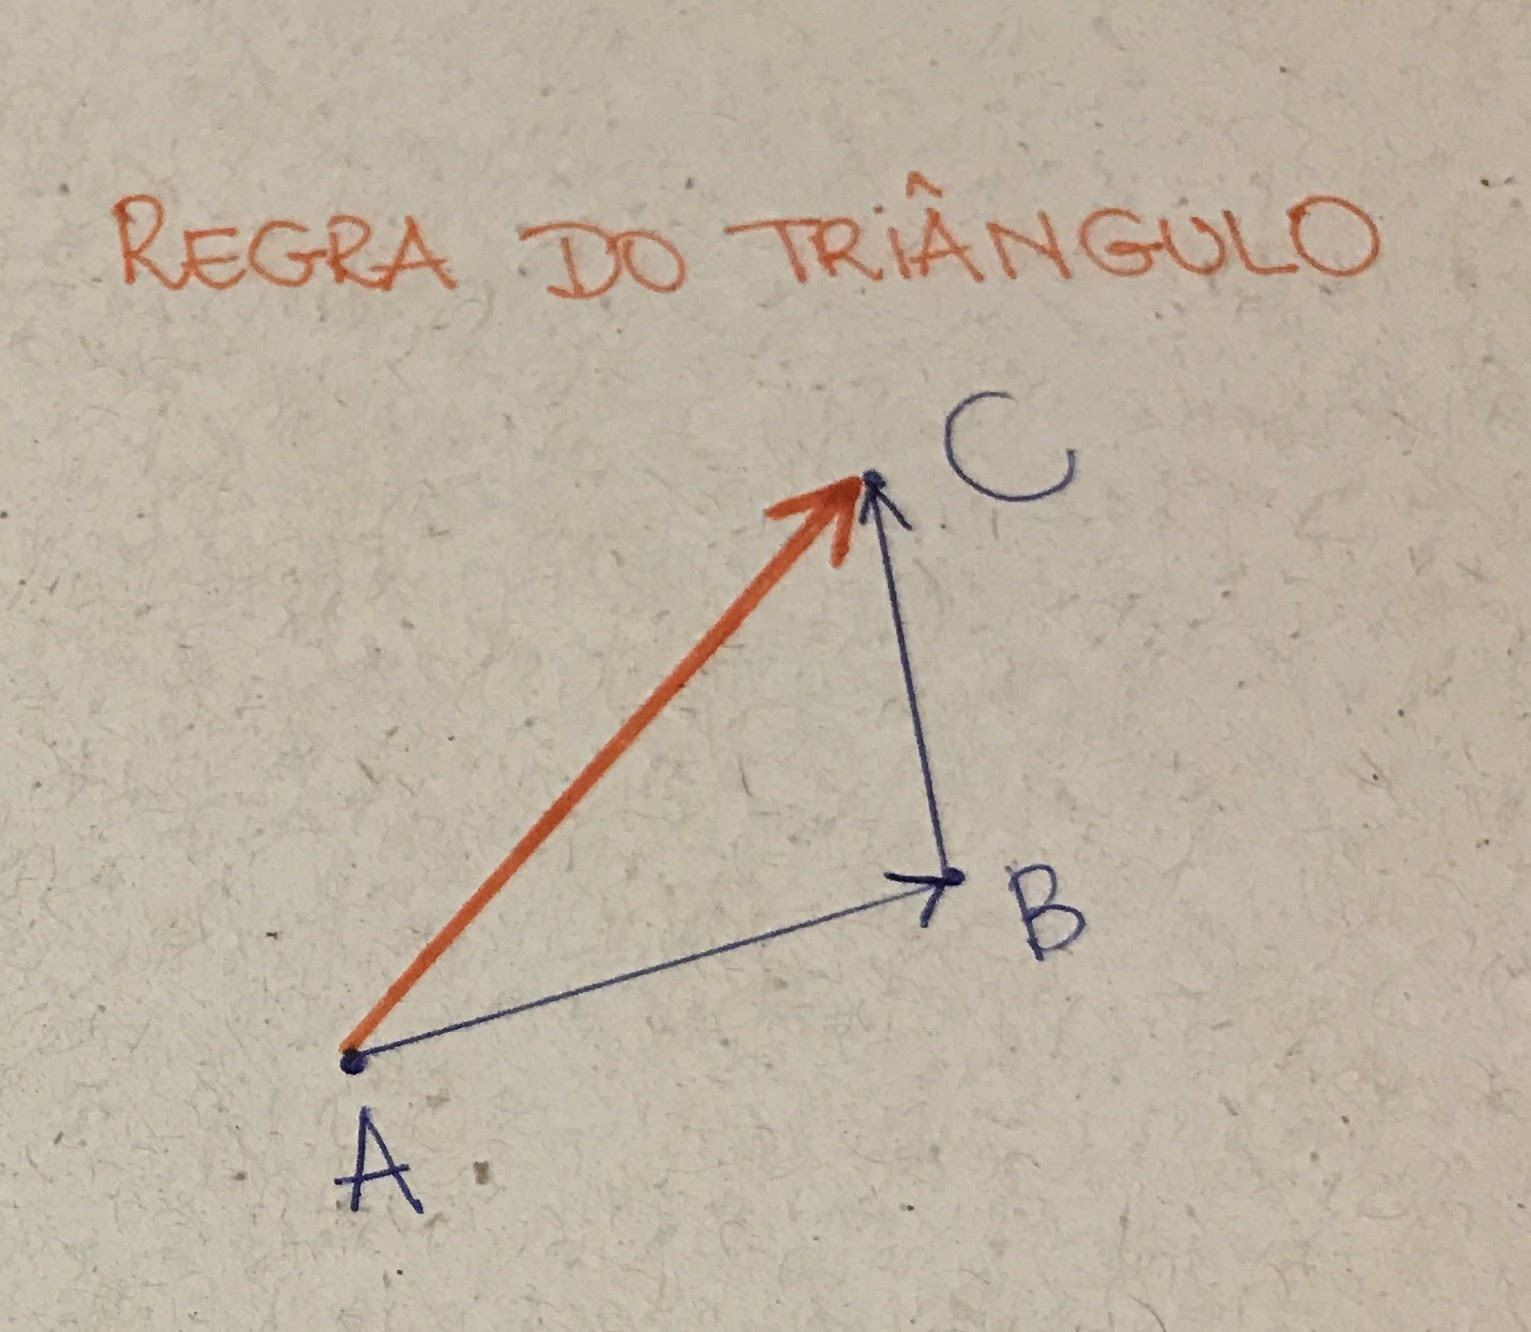 REGRA DO TRIÂNGULO
C
B
A